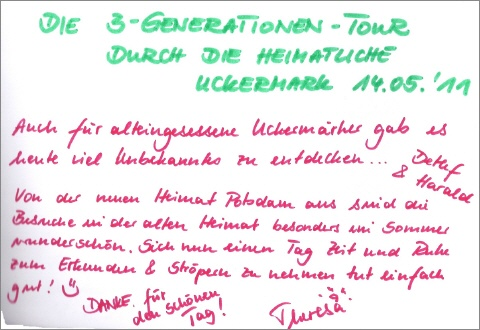 DIE 3-GENERATIONEN-TOUR
DURCH DIE HEIMATLICHE
UCKERMARK 14.05.'11
Auch für alteingesessene Uckermärker gab es
heute viel Unbekanntes zu entdecken... & Detlef
Harald
Von der neuen Heimat Potsdam aus sind die
Besuche in der alten Heimat besonders im Sommer
wunderschön. Sich nun einen Tag Zeit und Ruhe
zum Erkunden & Ströpern zu nehmen tut einfach
gut! ☺
DANKE für
den schönen
Tag!
Theresa